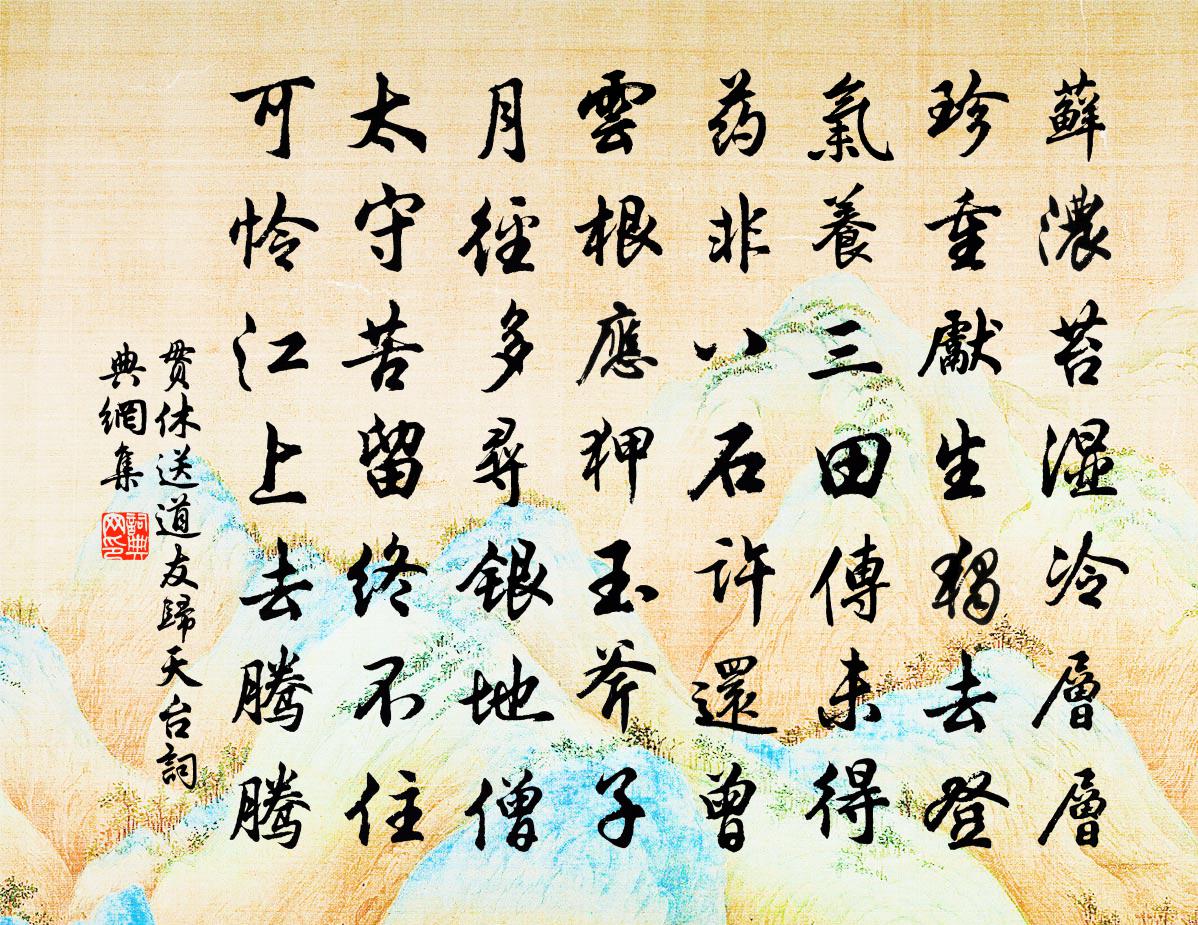 蘚濃苔濕冷層層
珍重獻生獨去登
氣養三田傳未得
药非八石許還曾
雲根應狎玉斧子
月徑多尋銀地僧
太守苦留終不住
可怜江上去騰騰
貫休送道友歸天台詞
典網集
詞典
网印